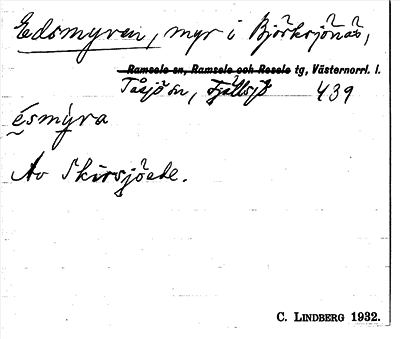 Edsmyren, myr i Björksjönäs,
Ramsele sn, Ramsele och Resele tg, Västernorrl. l.
Tåsjö sn, Fjällsjö 439
ésmỳra
Av Skirsjöede.
C. LINDBERG 1932.